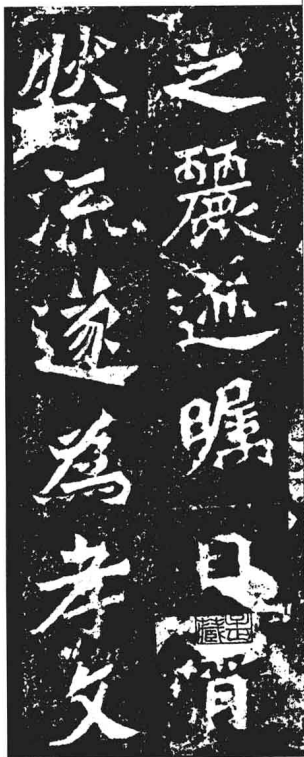 之麗迹矚目霄
然流遂為孝文